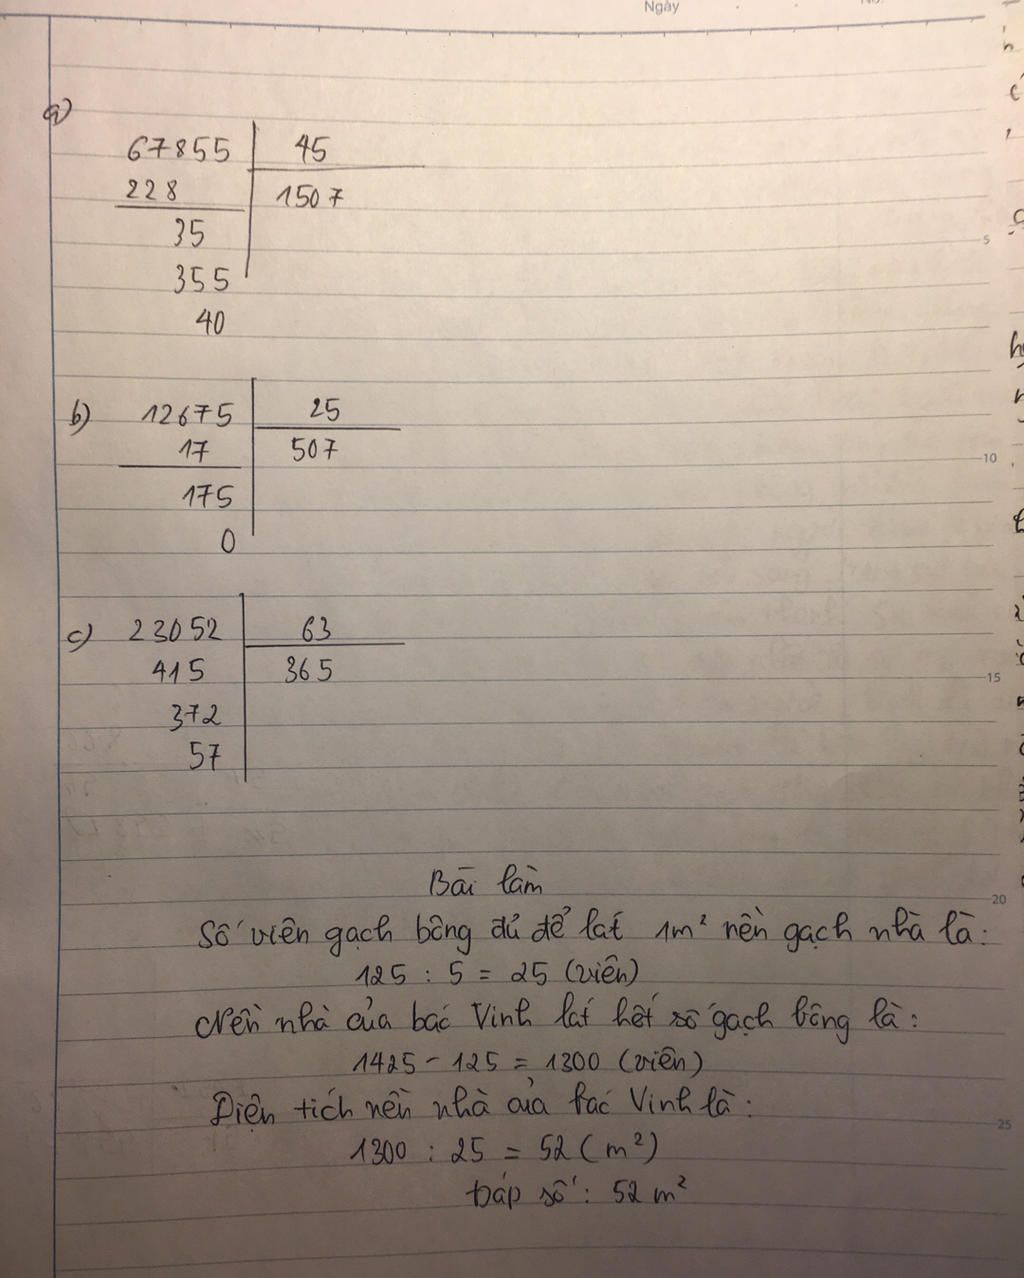 Ngày
a)
67855 45
228 1507
35
355
40
b) 12675 25
17 507
175
0
c) 23052 63
415 365
372
57
Bài làm
Số viên gạch bông đủ để lát 1m² nền gạch nhà là:
125 : 5 = 25 (viên)
Nền nhà của bác Vinh lát hết số gạch bông là:
1425 - 125 = 1300 (viên)
Diện tích nền nhà của bác Vinh là:
1300 : 25 = 52 (m²)
Đáp số: 52 m²
5
10
15
20
25